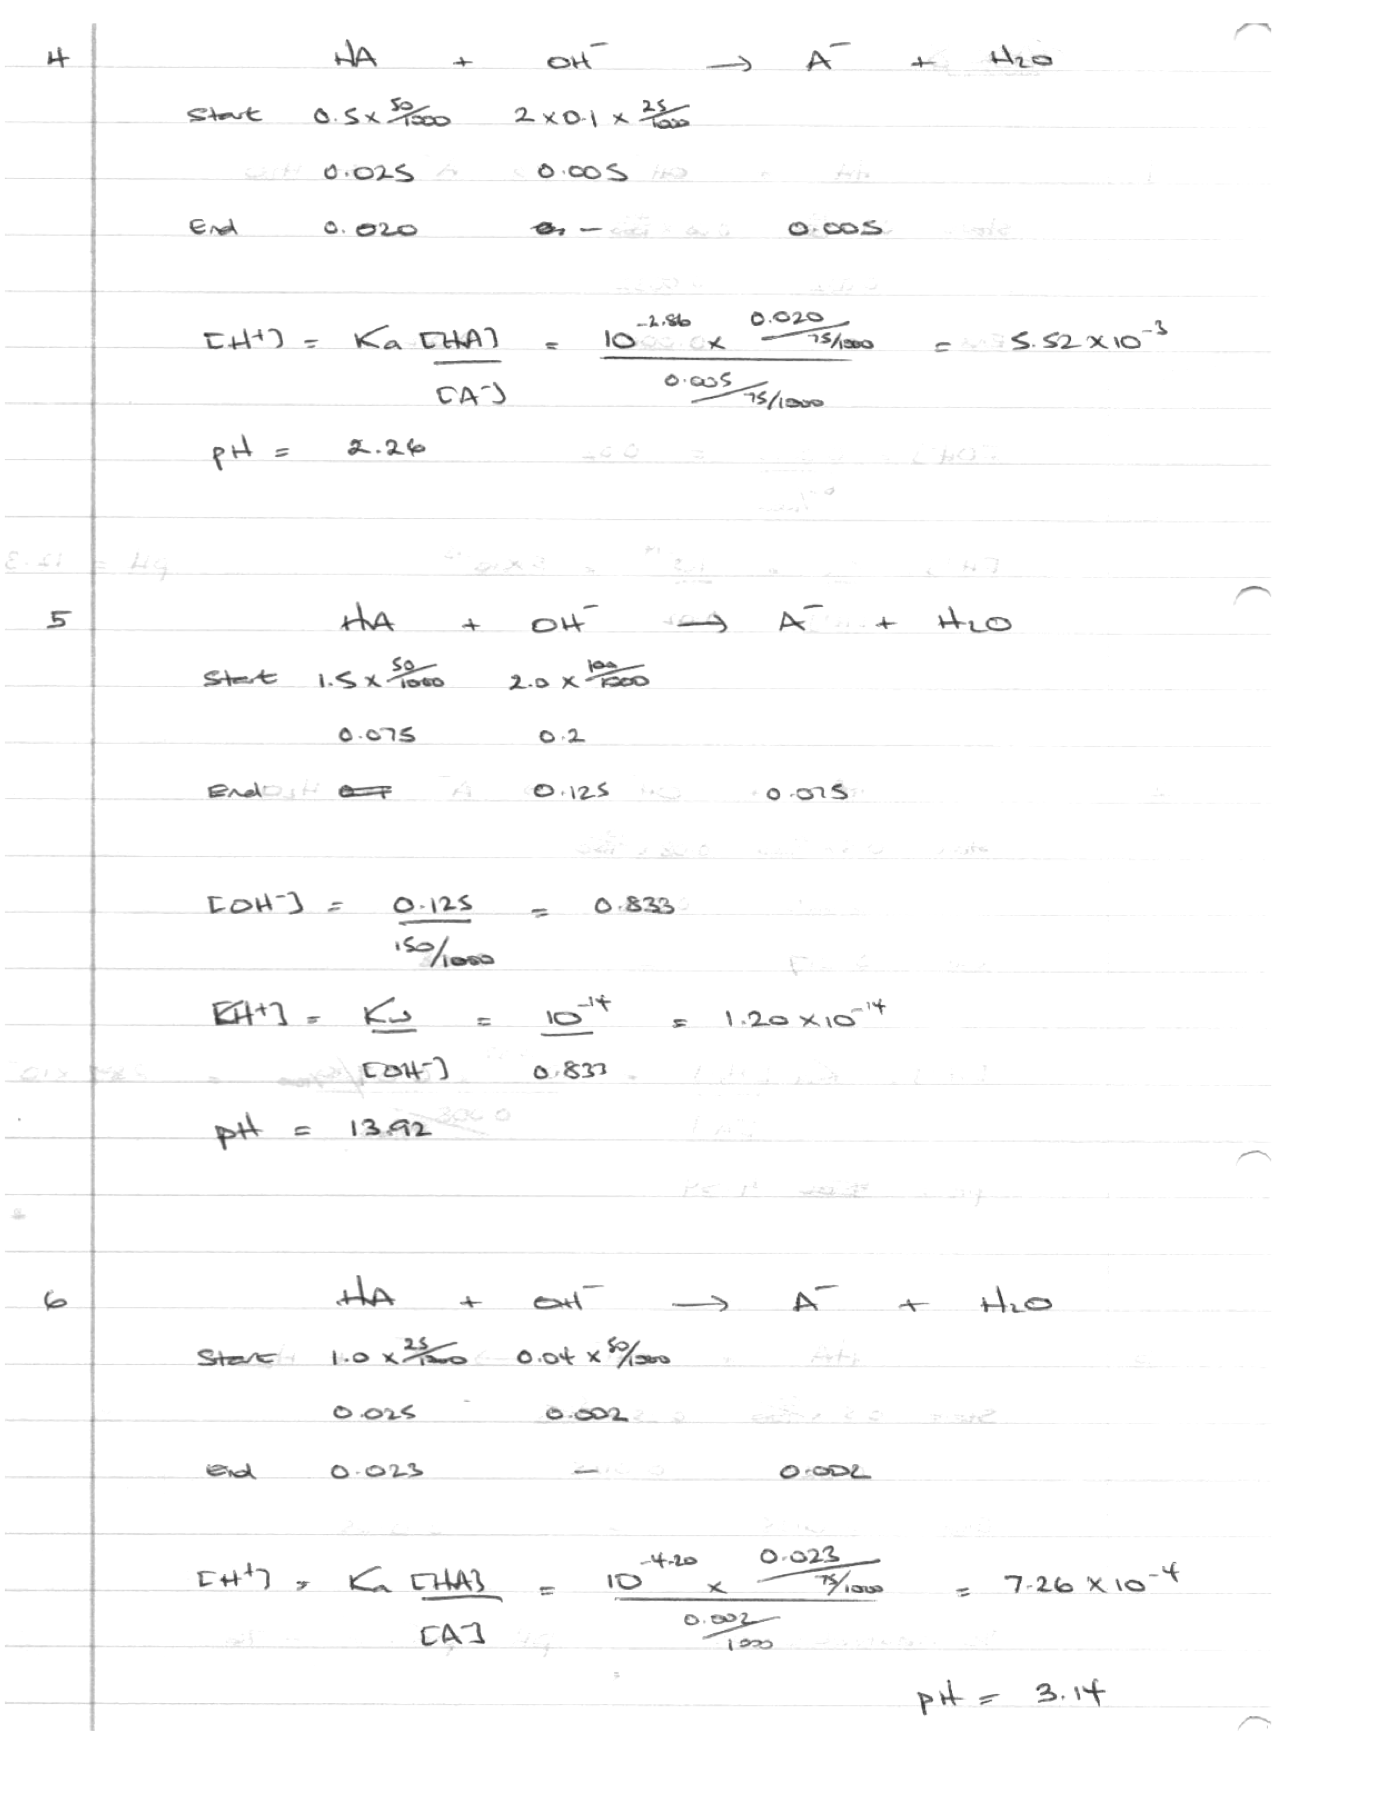 4 HA + OH⁻ → A⁻ + H₂O
Start 0.5 × 50/1000 2 × 0.1 × 25/1000
0.025 0.005
End 0.020 – 0.005
[H⁺] = Ka [HA] / [A⁻] = 10^-2.86 × 0.020 / 75/1000 / 0.005 / 75/1000 = 5.52 × 10⁻³
pH = 2.26
5 HA + OH⁻ → A⁻ + H₂O
Start 1.5 × 50/1000 2.0 × 100/1000
0.075 0.2
End 0.125 0.075
[OH⁻] = 0.125 / 150/1000 = 0.833
[H⁺] = Kw / [OH⁻] = 10⁻¹⁴ / 0.833 = 1.20 × 10⁻¹⁴
pH = 13.92
6 HA + OH⁻ → A⁻ + H₂O
Start 1.0 × 25/1000 0.04 × 50/1000
0.025 0.002
End 0.023 – 0.002
[H⁺] = Ka [HA] / [A⁻] = 10^-4.20 × 0.023 / 75/1000 / 0.002 / 1000 = 7.26 × 10⁻⁴
pH = 3.14